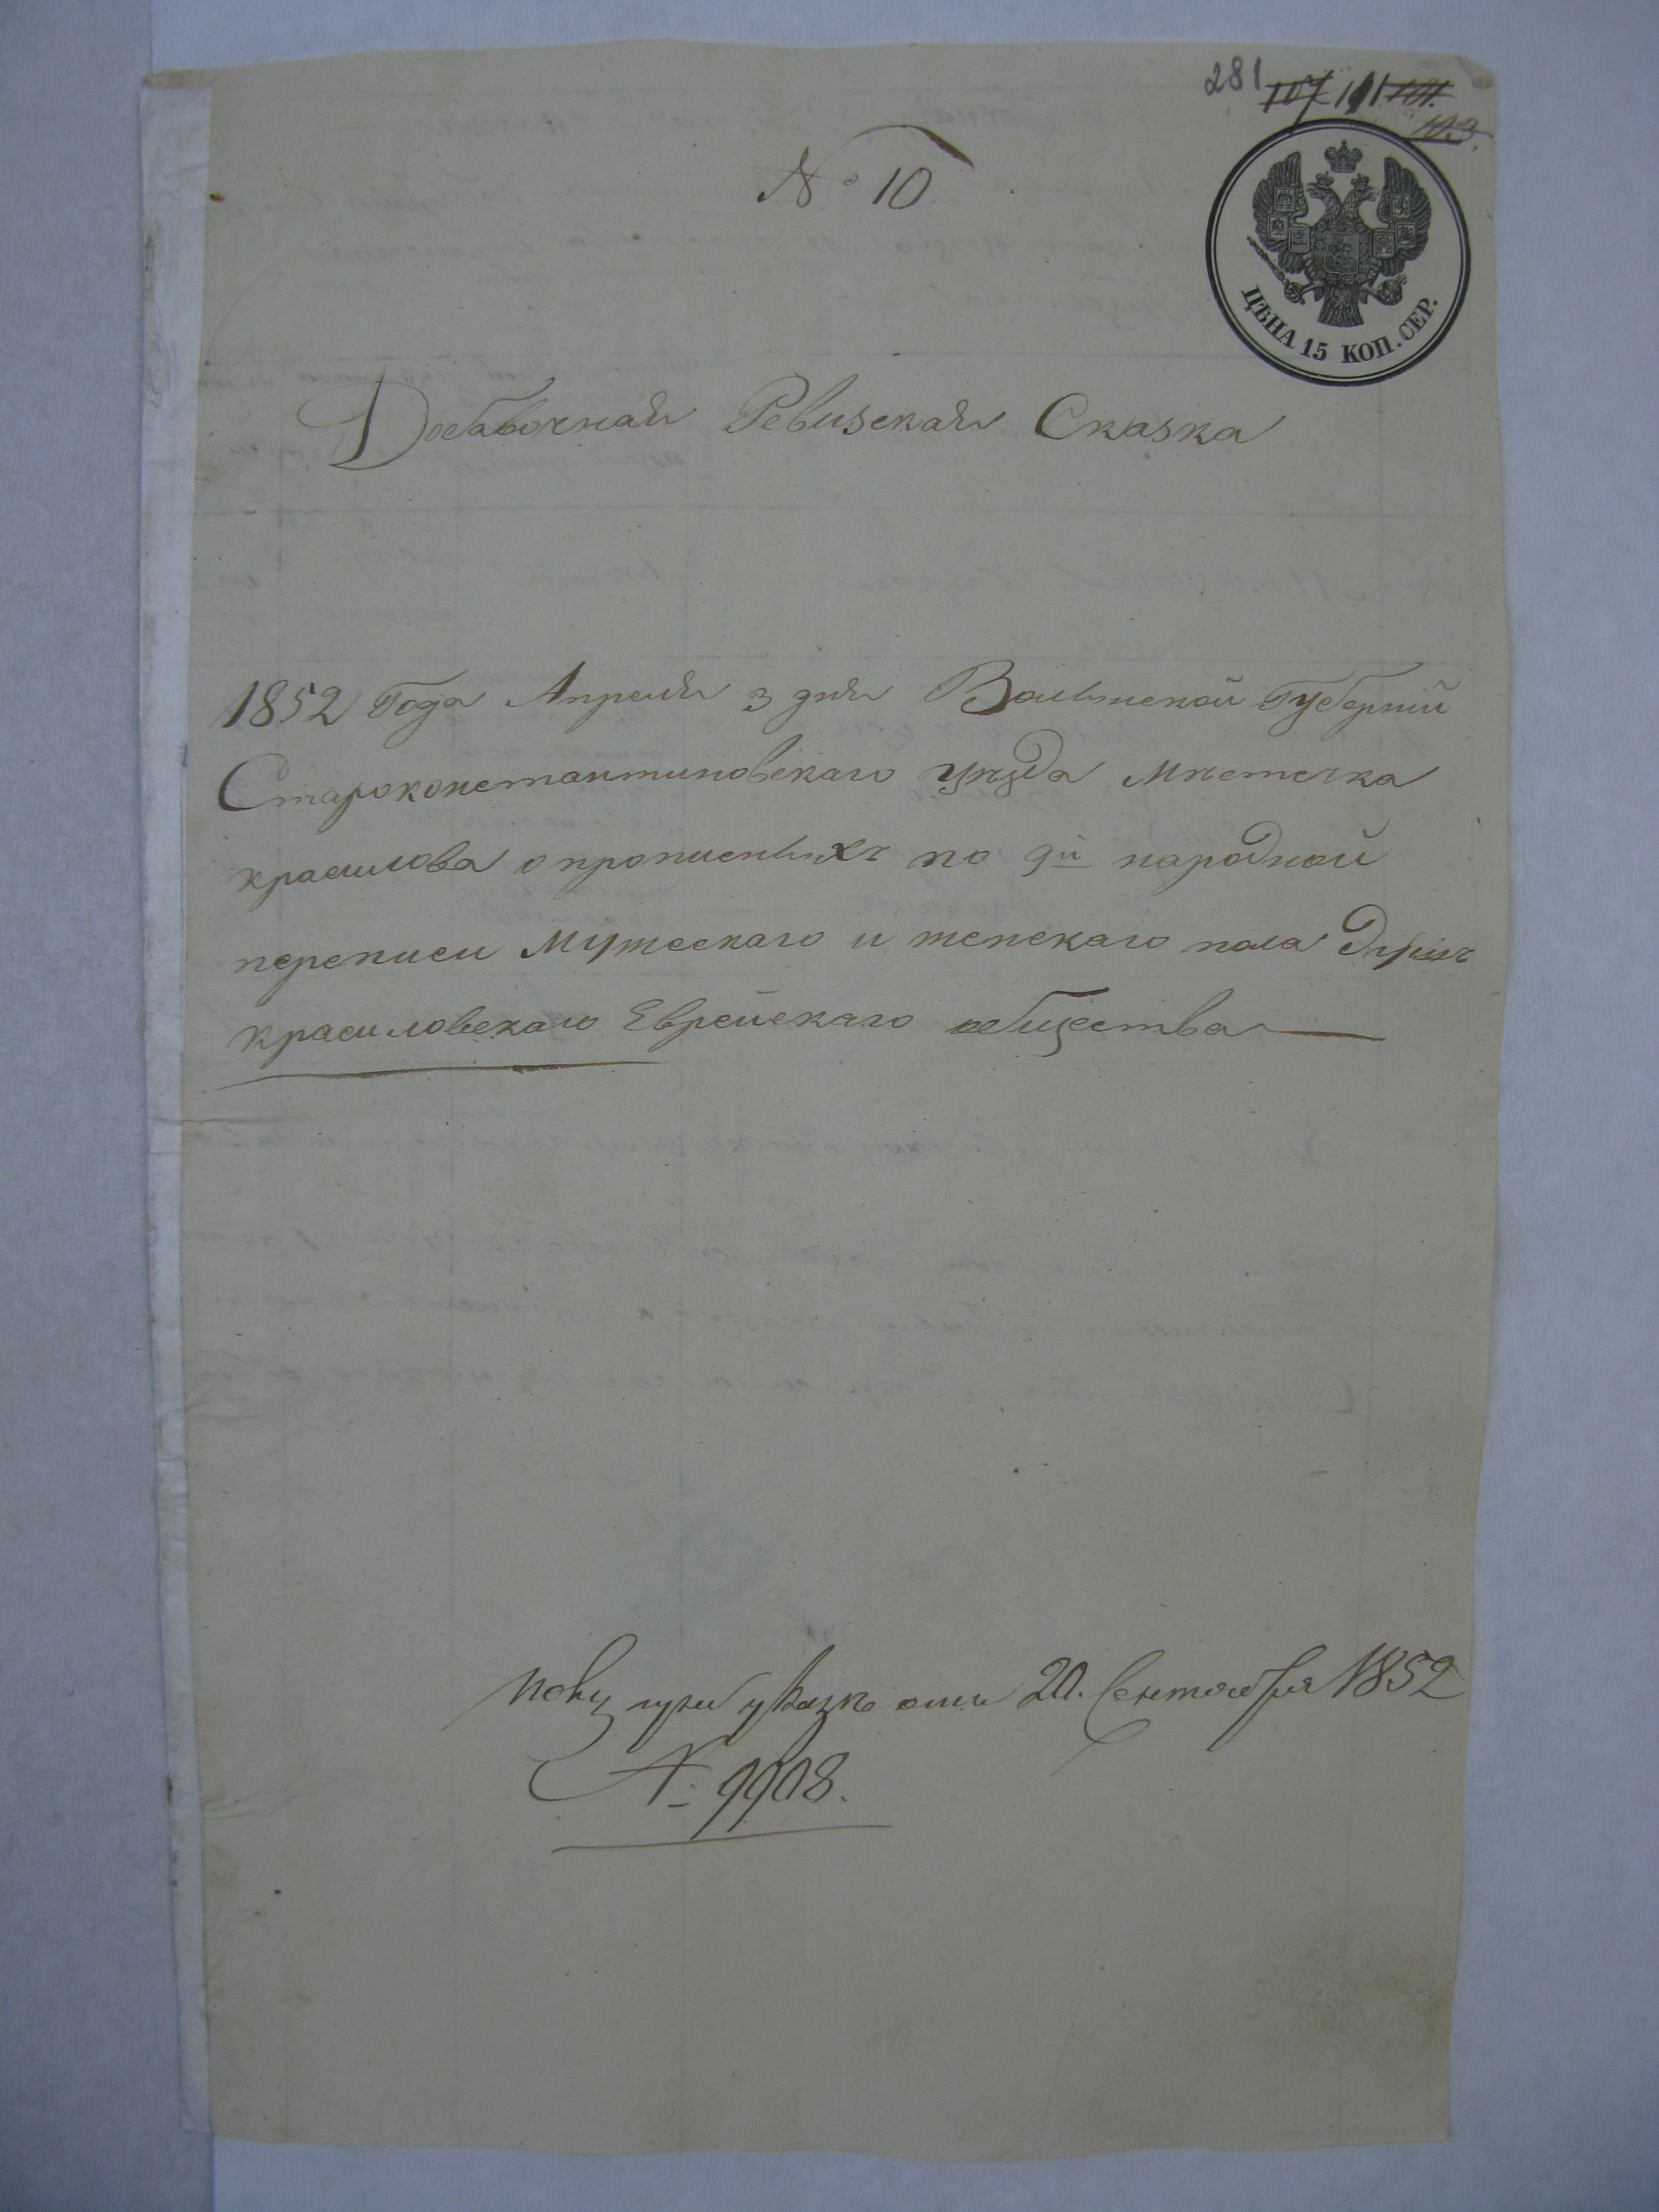 281 107 111 101.
103.
№ 10
ЦѢНА 15 КОП. СЕР.
Добавочная Ревизская Сказка
1852 Года Апреля 3 дня Волынской Губерніи
Староконстантиновскаго уѣзда Мѣстечка
красилова о прописныхъ по 9й народной
переписи Мужескаго и женскаго пола Душъ
красиловскаго Еврейскаго общества
при указѣ отъ 20. Сентября 1852
№ 9908.